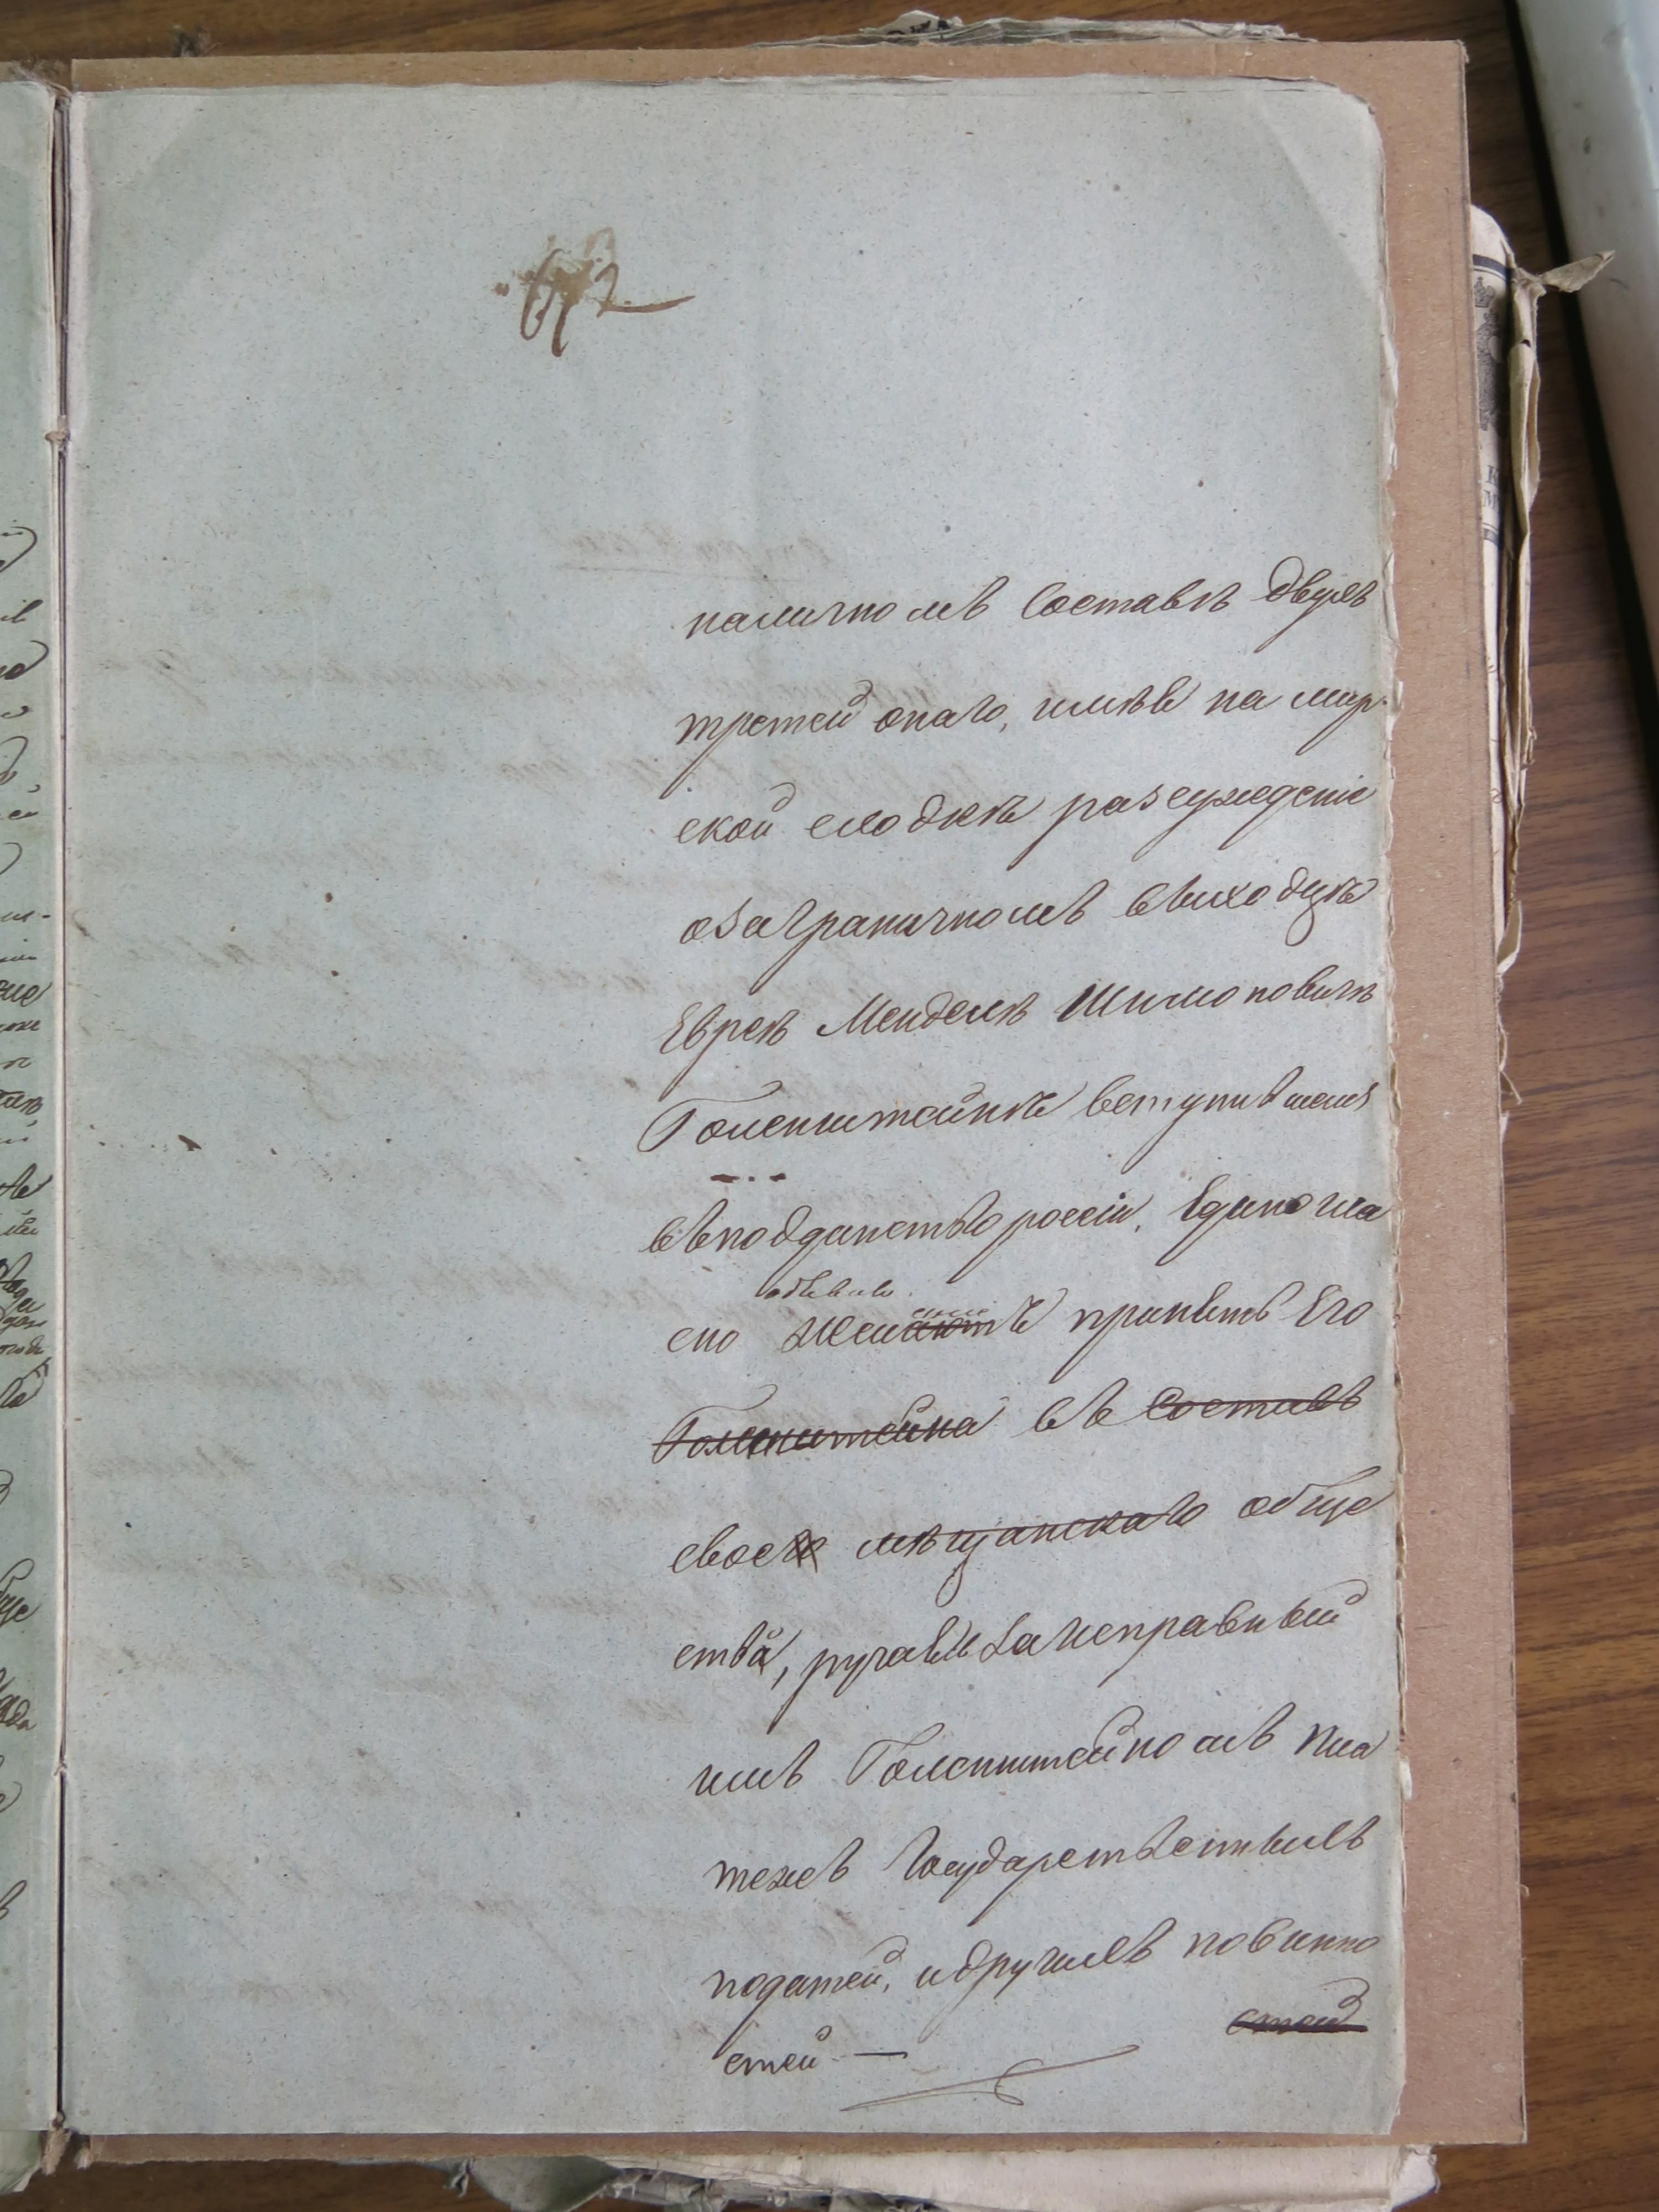 наличномъ Составѣ двухъ
третей онаго, имѣвъ на мир-
ской сходкѣ разсужденіе
о заграничномъ выходцѣ
Евреѣ Менделѣ Шимоновичѣ
Голенштейнѣ вступившемъ
въ подданство россіи. Единогла
сно желаютъ принять Его
Голенштейна въ Составъ
своего мѣщанскаго обще
ства, ручаясь за исправный
имъ Голенштейномъ пла
тежъ Государственныхъ
податей, и другихъ повинно
стей
стей —